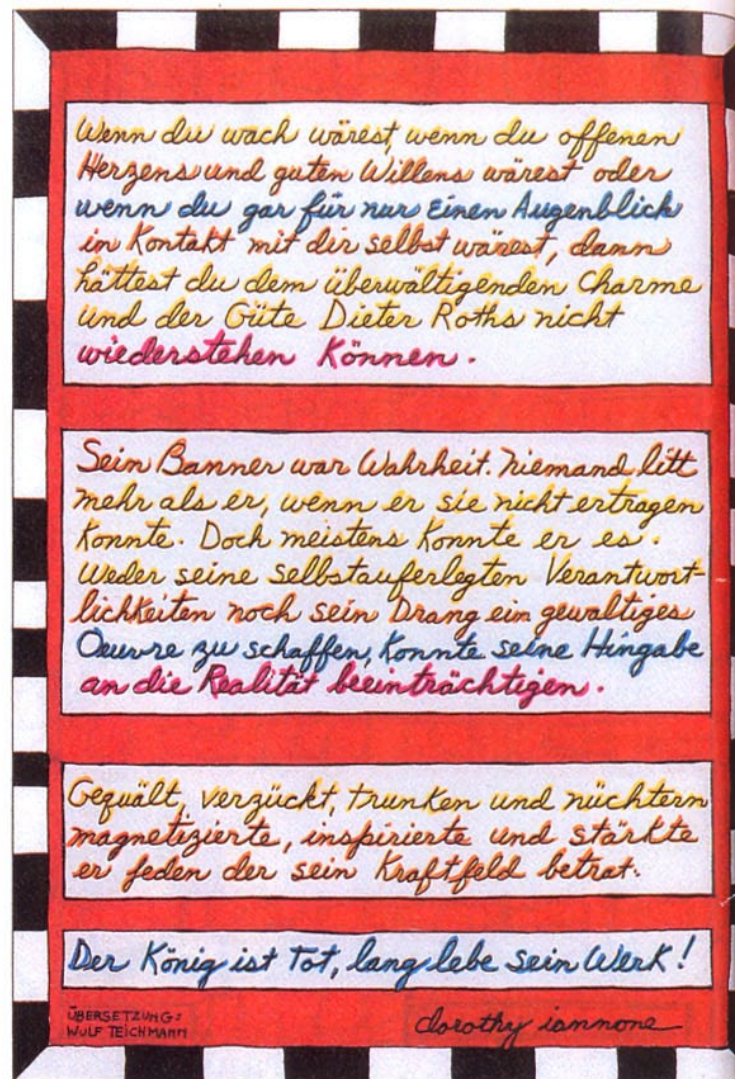 Wenn du wach wärest, wenn du offenen
Herzens und guten Willens wärest oder
wenn du gar für nur Einen Augenblick
in Kontakt mit dir selbst wärest, dann
hättest du dem überwältigenden Charme
und der Güte Dieter Roths nicht
wiederstehen Können.
Sein Banner war Wahrheit. Niemand litt
mehr als er, wenn er sie nicht ertragen
Konnte. Doch meistens Konnte er es.
Weder seine selbstauferlegten Verantwort-
lichkeiten noch sein Drang ein gewaltiges
Oeuvre zu schaffen, Konnte seine Hingabe
an die Realität beeinträchtigen.
Gequält, verzückt, trunken und nüchtern
magnetizierte, inspirierte und stärkte
er jeden der sein Kraftfeld betrat.
Der König ist Tot, lang lebe sein Werk!
ÜBERSETZUNG:
WULF TEICHMANN
dorothy iannone